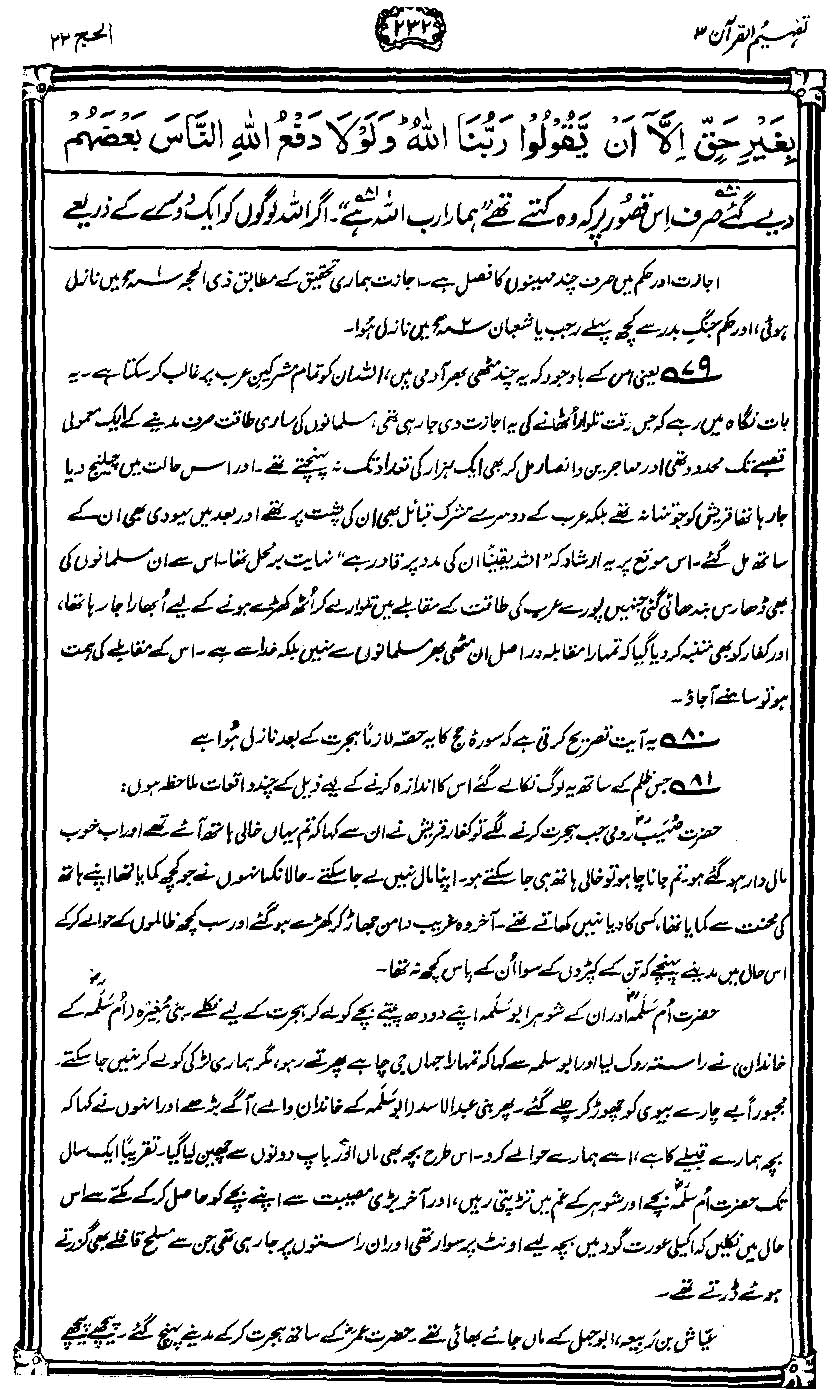 تفہیم القرآن ۳
۲۳۲
الحج ۲۲
بِغَيْرِ حَقٍّ اِلَّآ اَنْ يَّقُوْلُوْا رَبُّنَا اللّٰهُ ؕ وَلَوْلَا دَفْعُ اللّٰهِ النَّاسَ بَعْضَهُمْ
دیے گئے۸۰ صرف اِس قصُور پر کہ وہ کہتے تھے ”ہمارا رب اللہ ہے“۸۱۔ اگر اللہ لوگوں کو ایک دُوسرے کے ذریعے
اجازت اور حکم میں صرف چند مہینوں کا فصل ہے۔ اجازت ہماری تحقیق کے مطابق ذی الحجہ سلھ میں نازل
ہوئی، اور حکم جنگِ بدر سے کچھ پہلے رجب یا شعبان ۲ھ میں نازل ہُوا۔
۷۹ یعنی اس کے باوجود کہ یہ چند مٹھی بھر آدمی ہیں، اللہ ان کو تمام مشرکینِ عرب پر غالب کر سکتا ہے۔ یہ
بات نگاہ میں رہے کہ جس وقت تلوار اُٹھانے کی یہ اجازت دی جا رہی تھی، مسلمانوں کی ساری طاقت صرف مدینے کے ایک معمولی
قصبے تک محدود تھی اور مہاجرین و انصار مل کر بھی ایک ہزار کی تعداد تک نہ پہنچتے تھے۔ اور اس حالت میں چیلنج دیا
جا رہا تھا قریش کو جو تنہا نہ تھے بلکہ عرب کے دوسرے مشرک قبائل بھی ان کی پشت پر تھے اور بعد میں یہودی بھی ان کے
ساتھ مل گئے۔ اس موقع پر یہ ارشاد کہ ”اللہ یقیناً ان کی مدد پر قادر ہے“ نہایت برمحل تھا۔ اس سے ان مسلمانوں کی
بھی ڈھارس بندھائی گئی جنہیں پورے عرب کی طاقت کے مقابلے میں تلوار لے کر اُٹھ کھڑے ہونے کے لیے اُبھارا جا رہا تھا،
اور کفار کو بھی متنبہ کر دیا گیا کہ تمہارا مقابلہ دراصل ان مٹھی بھر مسلمانوں سے نہیں بلکہ خدا سے ہے۔ اس کے مقابلے کی ہمت
ہو تو سامنے آجاؤ۔
۸۰ یہ آیت تصریح کرتی ہے کہ سورۂ حج کا یہ حصہ لازماً ہجرت کے بعد نازل ہُوا ہے
۸۱ جس ظلم کے ساتھ یہ لوگ نکالے گئے اس کا اندازہ کرنے کے لیے ذیل کے چند واقعات ملاحظہ ہوں:
حضرت صُہَیب رومیؓ جب ہجرت کرنے لگے تو کفار قریش نے ان سے کہا کہ تم یہاں خالی ہاتھ آئے تھے اور اب خوب
مال دار ہو گئے ہو۔ تم جانا چاہو تو خالی ہاتھ ہی جا سکتے ہو۔ اپنا مال نہیں لے جا سکتے۔ حالانکہ انہوں نے جو کچھ کمایا تھا اپنے ہاتھ
کی محنت سے کمایا تھا، کسی کا دیا نہیں کھاتے تھے۔ آخر وہ غریب دامن جھاڑ کر کھڑے ہو گئے اور سب کچھ ظالموں کے حوالے کر کے
اس حال میں مدینے پہنچے کہ تن کے کپڑوں کے سوا ان کے پاس کچھ نہ تھا۔
حضرت اُم سَلَمہؓ اور ان کے شوہر ابو سَلَمہؓ اپنے دودھ پیتے بچے کو لے کر ہجرت کے لیے نکلے۔ بنی مُغیرہ (اُم سَلَمہ کے
خاندان) نے راستہ روک لیا اور ابو سلمہ سے کہا کہ تمہارا جہاں جی چاہے پھرتے رہو، مگر ہماری لڑکی کو لے کر نہیں جا سکتے۔
مجبوراً بے چارے بیوی کو چھوڑ کر چلے گئے۔ پھر بنی عبدالاسد (ابو سَلَمہ کے خاندان والے) آگے بڑھے اور انہوں نے کہا کہ
بچہ ہمارے قبیلے کا ہے، اسے ہمارے حوالے کرو۔ اس طرح بچہ بھی ماں اور باپ دونوں سے چھین لیا گیا۔ تقریباً ایک سال
تک حضرت اُم سَلَمہؓ بچے اور شوہر کے غم میں تڑپتی رہیں، اور آخر بڑی مصیبت سے اپنے بچے کو حاصل کر کے مکے سے اس
حال میں نکلیں کہ اکیلی عورت گود میں بچہ لیے اونٹ پر سوار تھی اور ان راستوں پر جا رہی تھی جن سے مسلح قافلے بھی گزرتے
ہوئے ڈرتے تھے۔
عیّاش بن رَبیعہ، ابو جہل کے ماں جائے بھائی تھے۔ حضرت عمرؓ کے ساتھ ہجرت کر کے مدینے پہنچ گئے۔ پیچھے پیچھے